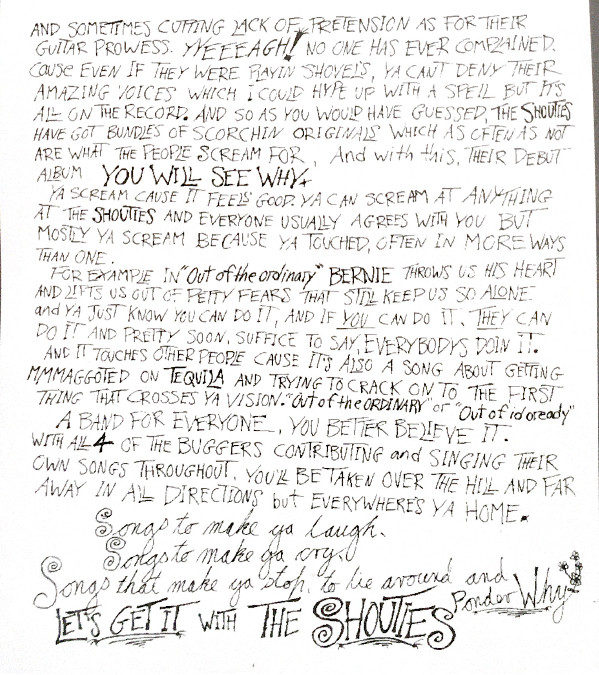 AND SOMETIMES CUTTING LACK OF PRETENSION AS FOR THEIR
GUITAR PROWESS. YYEEEAGH! NO ONE HAS EVER COMPLAINED.
CAUSE EVEN IF THEY WERE PLAYIN SHOVELS, YA CANT DENY THEIR
AMAZING VOICES WHICH I COULD HYPE UP WITH A SPELL BUT IT'S
ALL ON THE RECORD. AND SO AS YOU WOULD HAVE GUESSED, THE SHOUTIES
HAVE GOT BUNDLES OF SCORCHIN ORIGINALS WHICH AS OFTEN AS NOT
ARE WHAT THE PEOPLE SCREAM FOR, And with this, THEIR DEBUT
ALBUM YOU WILL SEE WHY.
YA SCREAM CAUSE IT FEELS GOOD. YA CAN SCREAM AT ANYTHING
AT THE SHOUTIES AND EVERYONE USUALLY AGREES WITH YOU BUT
MOSTLY YA SCREAM BECAUSE YA TOUCHED, OFTEN IN MORE WAYS
THAN ONE.
FOR EXAMPLE IN "Out of the ordinary" BERNIE THROWS US HIS HEART
AND LIFTS US OUT OF PETTY FEARS THAT STILL KEEP US SO ALONE.
and YA JUST KNOW YOU CAN DO IT, AND IF YOU CAN DO IT, THEY CAN
DO IT AND PRETTY SOON, SUFFICE TO SAY, EVERYBODYS DOIN IT.
AND IT TOUCHES OTHER PEOPLE CAUSE IT'S ALSO A SONG ABOUT GETTING
MMMAGGOTED ON TEQUILA AND TRYING TO CRACK ON TO THE FIRST
THING THAT CROSSES YA VISION. "Out of the ORDINARY" or "Out of idoready"
A BAND FOR EVERYONE... YOU BETTER BELIEVE IT.
WITH ALL 4 OF THE BUGGERS CONTRIBUTING and SINGING THEIR
OWN SONGS THROUGHOUT, YOU'LL BE TAKEN OVER THE HILL AND FAR
AWAY IN ALL DIRECTIONS but EVERYWHERE'S YA HOME.
Songs to make ya laugh.
Songs to make ya cry.
Songs that make ya stop, to lie around and
Ponder Why
LET'S GET IT WITH THE SHOUTIES